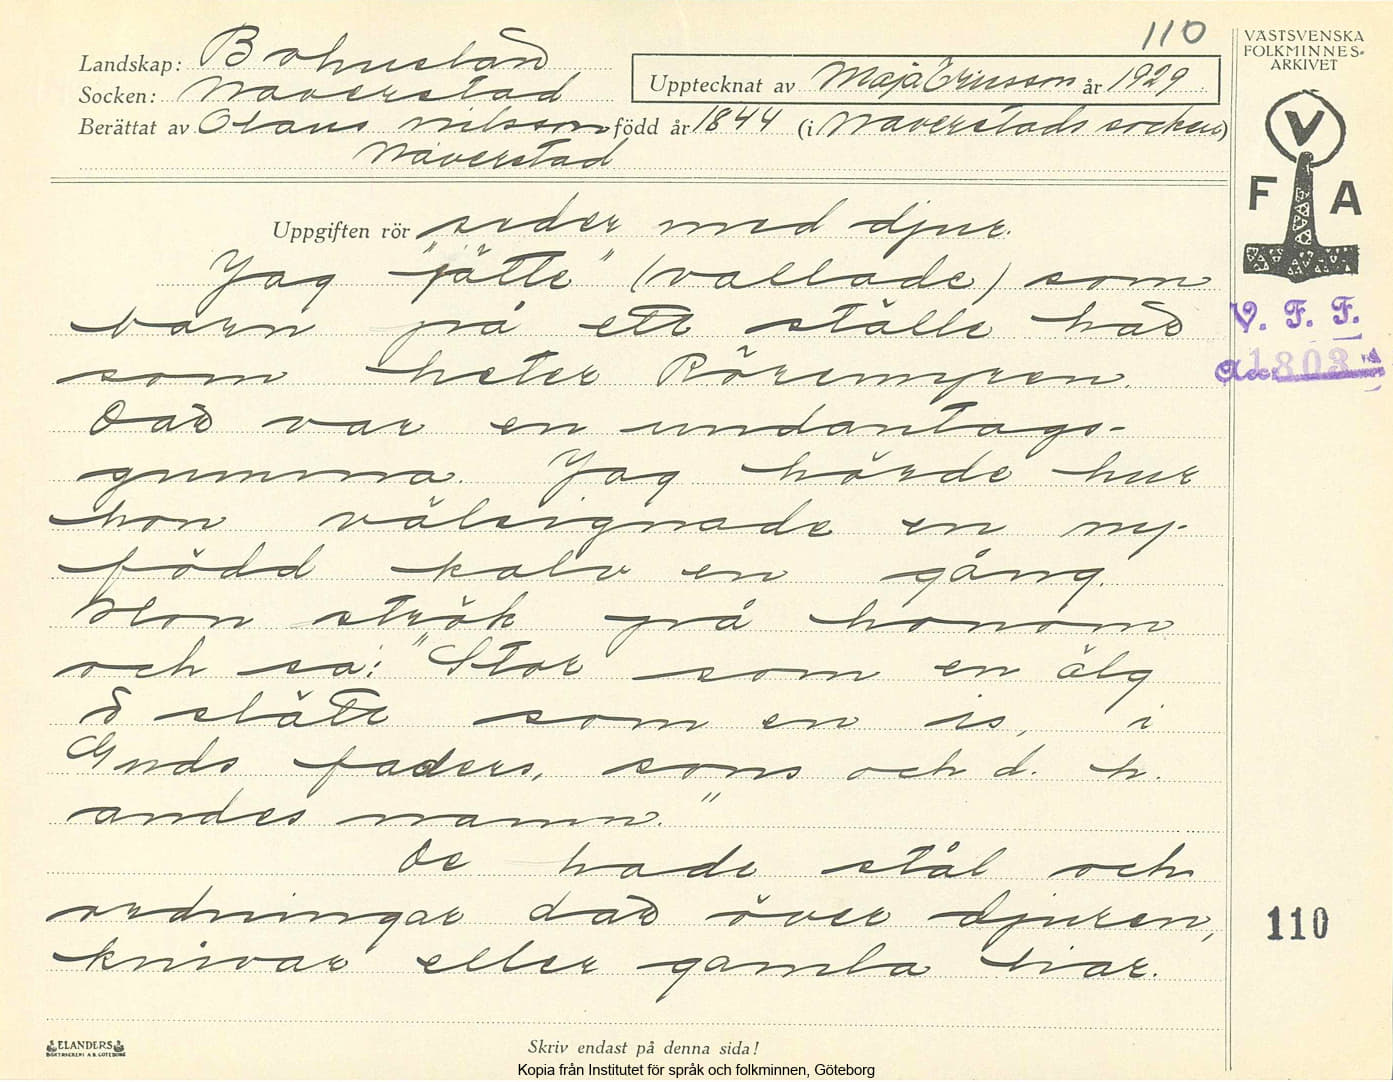 110
Landskap: Bohuslän
Socken: Naverstad
Upptecknat av Maja Ericsson år 1929
Berättat av Olaus Nilsson född år 1844 (i Naverstads socken)
Naverstad
VÄSTSVENSKA
FOLKMINNES-
ARKIVET
V
F A
Uppgiften rör seder med djur.
Jag "jätte" (vallade) som
barn på ett ställe här
som heter Röremyren.
Där var en undantags-
gumma. Jag hörde hur
hon välsignade en ny-
född kalv en gång.
Hon strök på honom
och sa: "Stor som en älg
å slätt som en is, i
Guds faders, sons och d. h.
andes namn."
De hade stål och
ordningar där över djuren,
knivar eller gamla liar.
V. F. F.
Acc. 1803
110
ELANDERS
BOKTRYCKERI A.B. GÖTEBORG
Skriv endast på denna sida!
Kopia från Institutet för språk och folkminnen, Göteborg